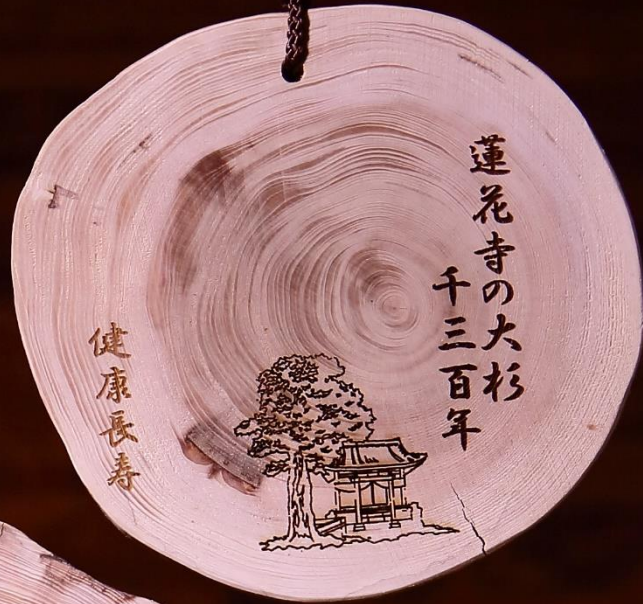 蓮花寺の大杉
千三百年
健康長寿